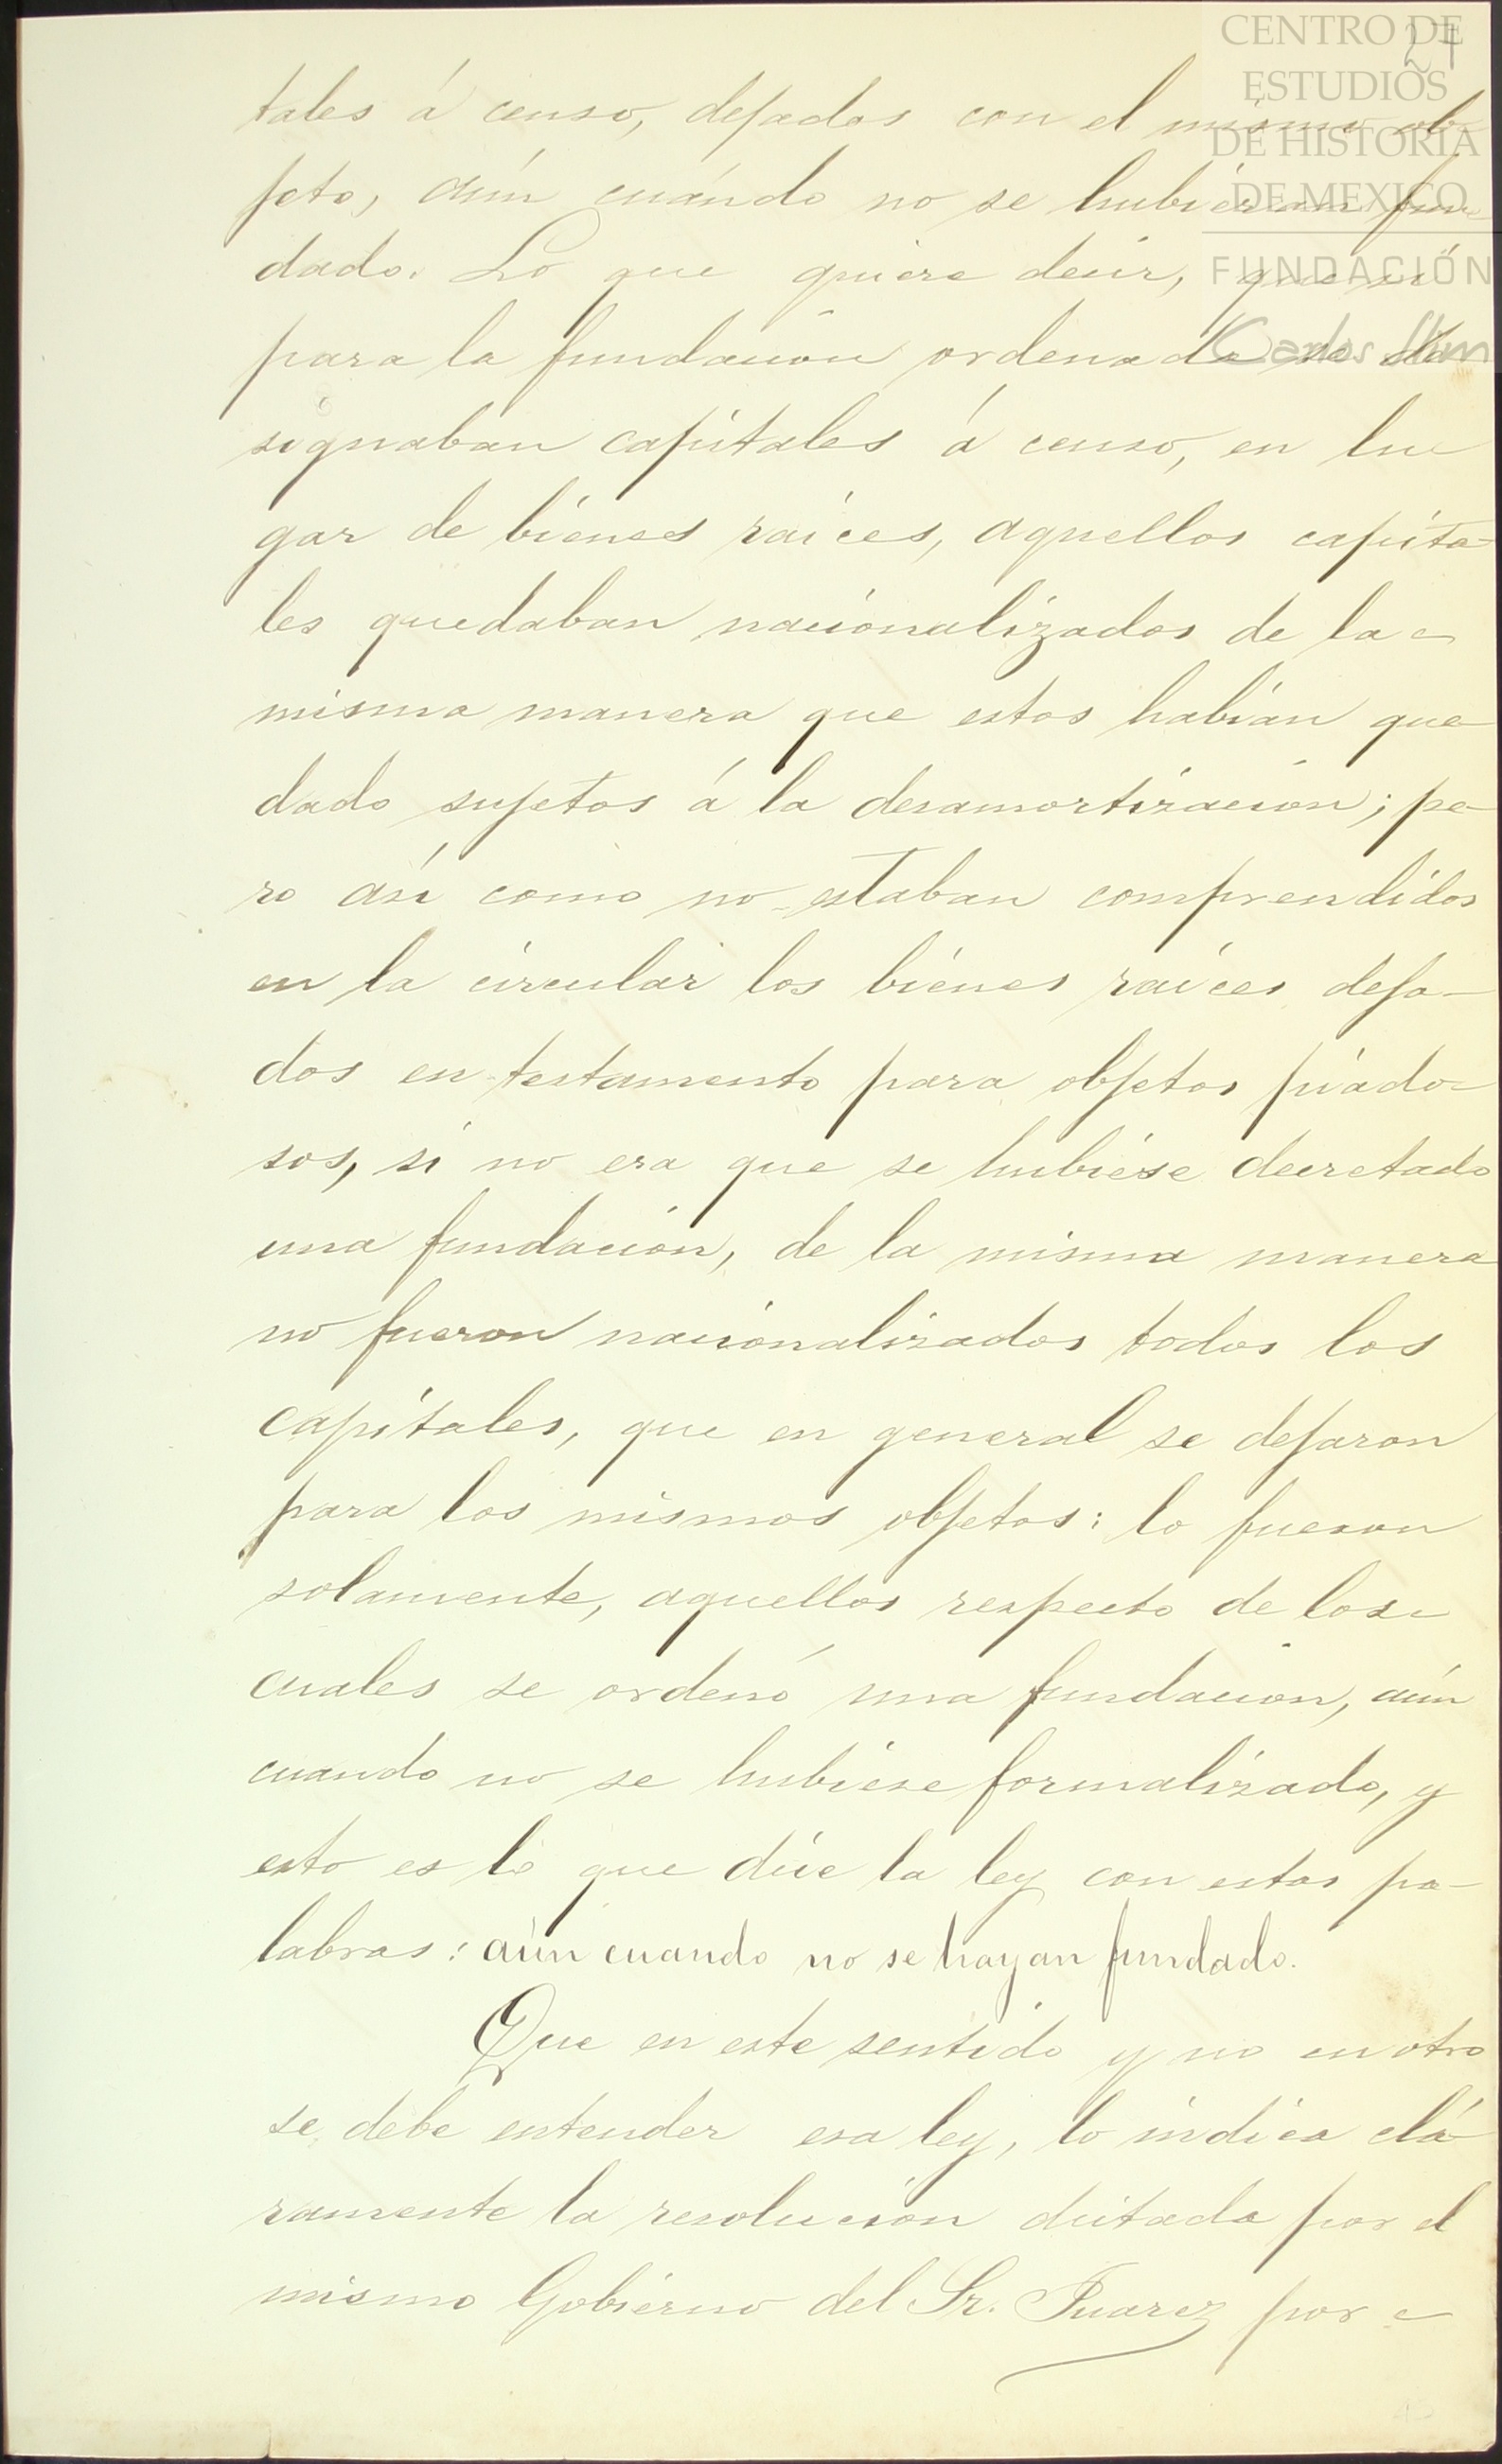 27
CENTRO DE
ESTUDIOS
DE HISTORIA
DE MEXICO
FUNDACIÓN
Carlos Slim
tales á censo, dejados con el mismo ob
jeto, aún cuándo no se hubieran fun
dado. Lo que quiere decir, que si
para la fundación ordenada se de
signaban capitales á censo, en lu
gar de bienes raíces, aquellos capita-
les quedaban nacionalizados de la
misma manera que estos habían que
dado sujetos á la desamortización; pe-
ro así como no estaban comprendidos
en la circular los bienes raíces deja-
dos en testamento para objetos piado-
sos, si no era que se hubiese decretado
una fundación, de la misma manera
no fueron nacionalizados todos los
capitales, que en general se dejaron
para los mismos objetos: lo fueron
solamente, aquellos respecto de los
cuales se ordenó una fundacion, aún
cuando no se hubiese formalizado, y
esto es lo que dice la ley con estas pa-
labras: aún cuando no se hayan fundado.
Que en este sentido y no en otro
se debe entender esa ley, lo indica clá
ramente la resolución dictada por el
mismo Gobierno del Sr. Juarez por